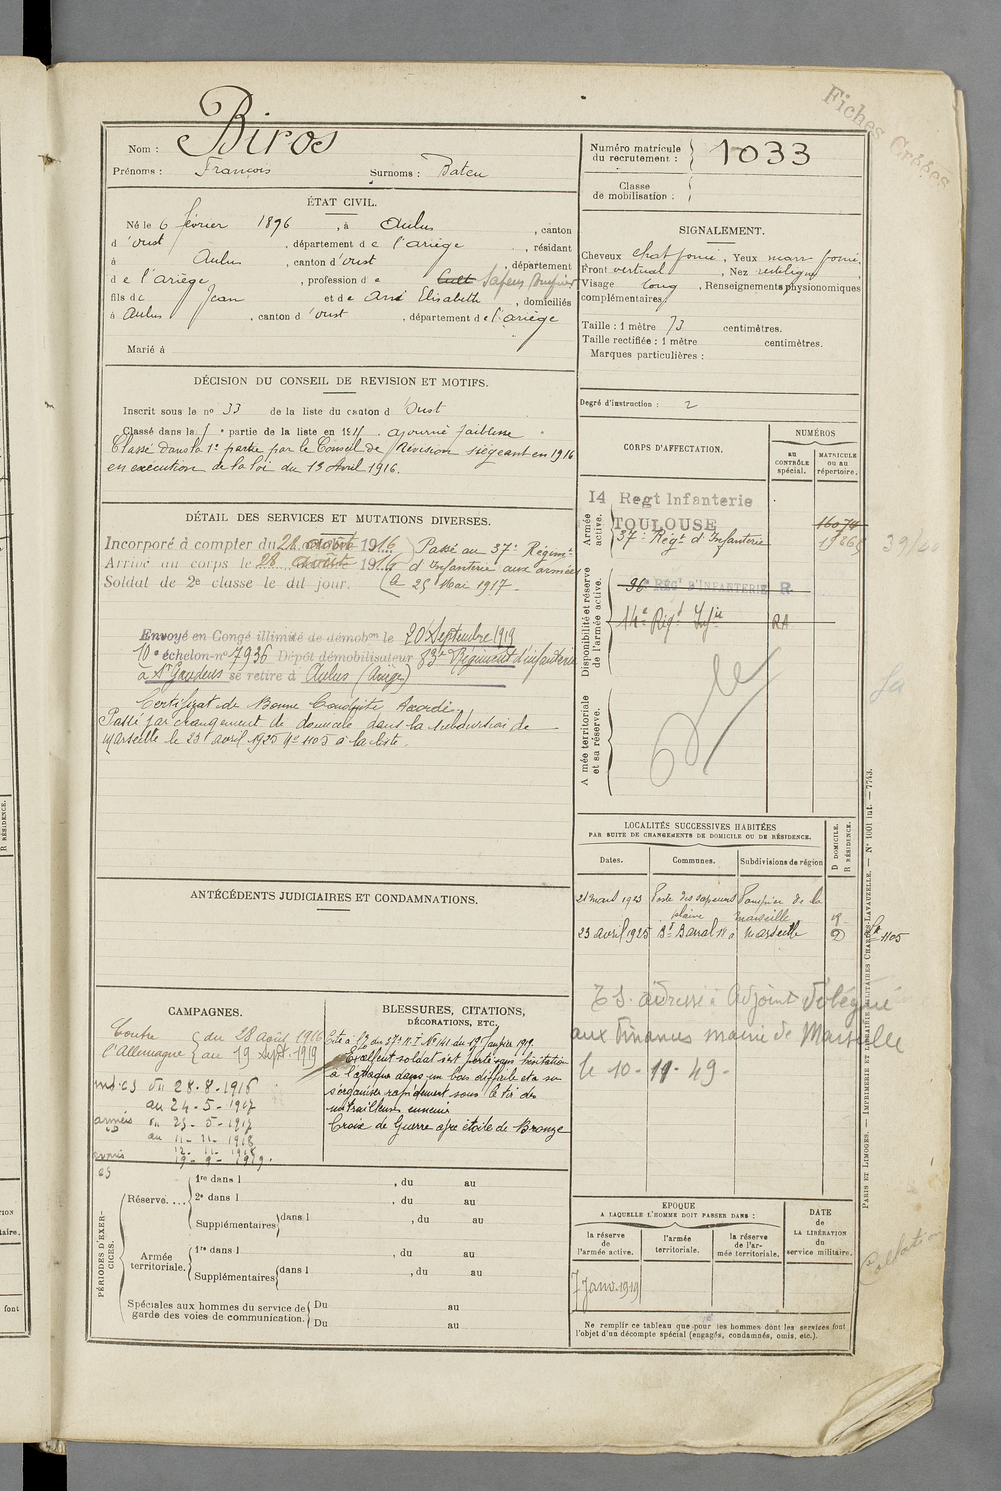 Fiches Créées
Nom : Biros
Prénoms : François Surnoms : Bateu
Numéro matricule du recrutement : 1033
Classe de mobilisation :
ÉTAT CIVIL.
Né le 6 février 1896, à Aulus, canton
d'Oust, département de l'Ariège, résidant
à Aulus, canton d'Oust, département
de l'Ariège, profession de Cult Sapeur Pompier
fils de Jean et de Elisabeth, domiciliés
à Aulus, canton d'Oust, département de l'Ariège
Marié à
SIGNALEMENT.
Cheveux chat foncé, Yeux marr foncé,
Front vertical, Nez rectiligne
Visage long, Renseignements physionomiques
complémentaires
Taille : 1 mètre 73 centimètres.
Taille rectifiée : 1 mètre centimètres.
Marques particulières :
Degré d'instruction : 2
DÉCISION DU CONSEIL DE REVISION ET MOTIFS.
Inscrit sous le no 33 de la liste du canton d'Oust
Classé dans la partie de la liste en 191 ajourné faiblesse
Classé dans la 1e partie par le Conseil de Révision siégeant en 1916
en exécution de la loi du 13 Avril 1916.
DÉTAIL DES SERVICES ET MUTATIONS DIVERSES.
Incorporé à compter du 28 août 1916
Arrivé au corps le 28 août 1916
Soldat de 2e classe le dit jour.
Passé au 37e Régimt
d'Infanterie aux armées
le 25 Mai 1917
Envoyé en Congé illimité de démobon le 20 Septembre 1919
10e échelon no 7936 Dépôt démobilisateur 83e Régiment d'infanterie
à St Gaudens se retire à Aulus (Ariège)
Certificat de Bonne Conduite Accordé.
Passé par changement de domicile dans la subdivision de
Marseille le 23 avril 1925 No 1105 à la liste.
CORPS D'AFFECTATION.
NUMÉROS
au CONTRÔLE spécial.
MATRICULE ou au répertoire.
Armée active.
14 Regt Infanterie
TOULOUSE
37e Régt d'Infanterie
Disponibilité et réserve de l'armée active.
96e RÉGt D'INFANTERIE R
14e Régt Infie RA
A mée territoriale et sa réserve.
ANTÉCÉDENTS JUDICIAIRES ET CONDAMNATIONS.
LOCALITÉS SUCCESSIVES HABITÉES
PAR SUITE DE CHANGEMENTS DE DOMICILE OU DE RÉSIDENCE.
Dates. Communes. Subdivisions de région
D DOMICILE. R RÉSIDENCE.
21 mars 1923 Poste des sapeurs Pompier de la
plaine Marseille R
23 avril 1925 Bd Barral 11 à Marseille D
1105
adresse : Adjoint Délégué
aux Finances mairie de Marseille
le 10-11-49-
CAMPAGNES.
Contre l'Allemagne
du 28 août 1916
au 19 Sept. 1919
du 28-8-1916
au 24-5-1917
armées du 25-5-1917
au 11-11-1918
12-11-1918
19-9-1919.
BLESSURES, CITATIONS,
DÉCORATIONS, ETC.
Cité à l'O du 37e R.I No 141 du 19 Janvier 1919.
Excellent soldat s'est porté sans hésitation
à l'attaque dans un bois difficile et a su
s'organiser rapidement sous le tir des
mitrailleuses ennemies
Croix de Guerre avec étoile de Bronze
PÉRIODES D'EXERCICES.
Réserve....
1re dans l , du au
2e dans l , du au
Supplémentaires dans l , du au
Armée territoriale.
1re dans l , du au
Supplémentaires dans l , du au
Spéciales aux hommes du service de
garde des voies de communication.
Du au
Du au
EPOQUE
A LAQUELLE L'HOMME DOIT PASSER DANS :
la réserve de l'armée active.
l'armée territoriale.
la réserve de l'armée territoriale.
DATE de LA LIBÉRATION du service militaire.
7 Janv. 1919
Ne remplir ce tableau que pour les hommes dont les services font
l'objet d'un décompte spécial (engagés, condamnés, omis, etc.).
PARIS ET LIMOGES. — IMPRIMERIE ET LIBRAIRIE MILITAIRES CHARLES-LAVAUZELLE. — No 1001 int. — 7743.
R RÉSIDENCE.
font